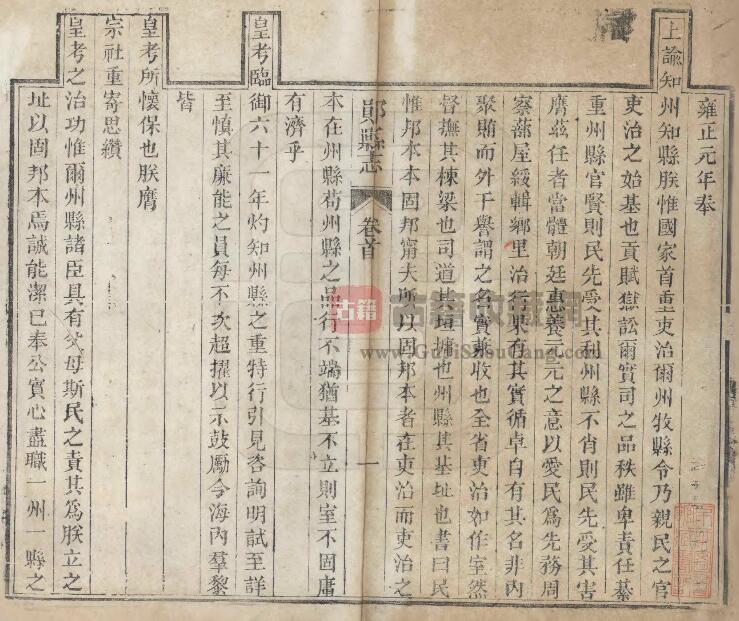 雍正元年奉
上諭知州知縣朕惟國家首重吏治爾州牧縣令乃親民之官
吏治之始基也貢賦獄訟爾實司之品秩雖卑責任綦
重州縣官賢則民先受其利州縣不肖則民先受其害
膺茲任者當體朝廷惠養元元之意以愛民為先務周
察蔀屋綏輯鄉里治行果有其實循卓自有其名非內
聚賄而外干譽謂之名實兼收也全省吏治如作室然
督撫其棟梁也司道其垣墉也州縣其基址也書曰民
惟邦本本固邦甯夫所以固邦本者在吏治而吏治之
鄖縣志 卷首 一
本在州縣苟州縣之品行不端猶基不立則室不固庸
有濟乎
皇考臨御六十一年灼知州縣之重特行引見咨詢明試至詳
至慎其廉能之員每不次超擢以示鼓勵今海內羣黎
皆
皇考所懷保也朕膺
宗社重寄思纘
皇考之治功惟爾州縣諸臣具有父母斯民之責其為朕立之
址以固邦本焉誠能潔已奉公實心盡職一州一縣之
古籍
古籍收藏網
www.GuJiShouCang.com